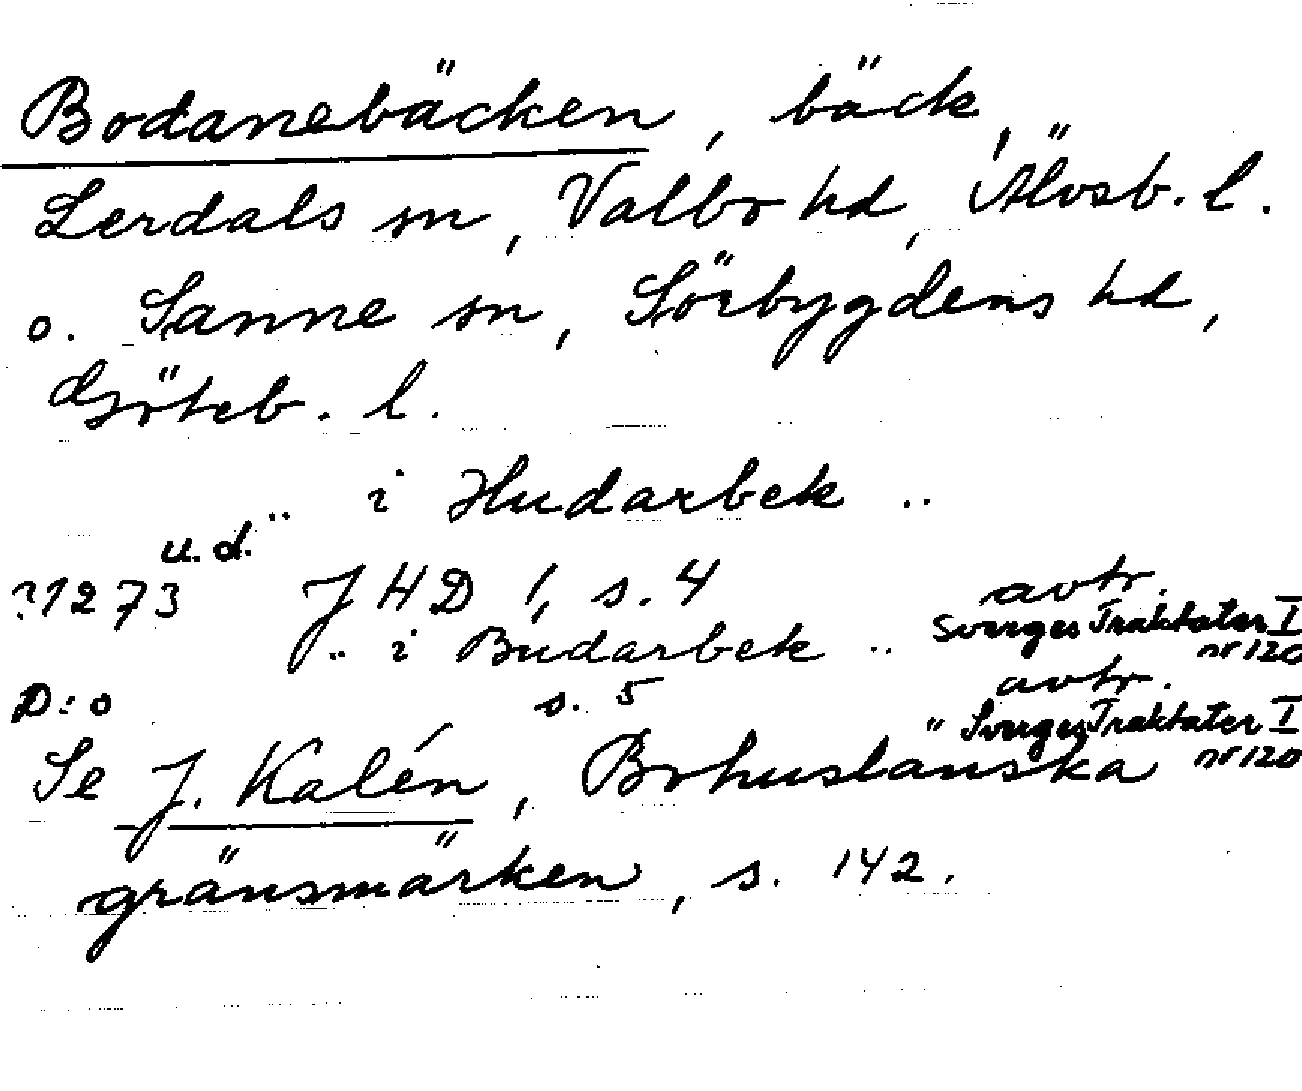 Bodanebäcken, bäck,
Lerdals sn, Valbo hd, Älvsb. l.
o. Sanne sn, Sörbygdens hd,
Göteb. l.
.. i Hudarbek ..
u.d.
?1273 JHD 1, s. 4 avtr. Sveriges Traktater I nr 120
.. i Budarbek ..
D:o s. 5 avtr. " Sveriges Traktater I nr 120
Se J. Kalén, Bohuslänska
gränsmärken, s. 142.